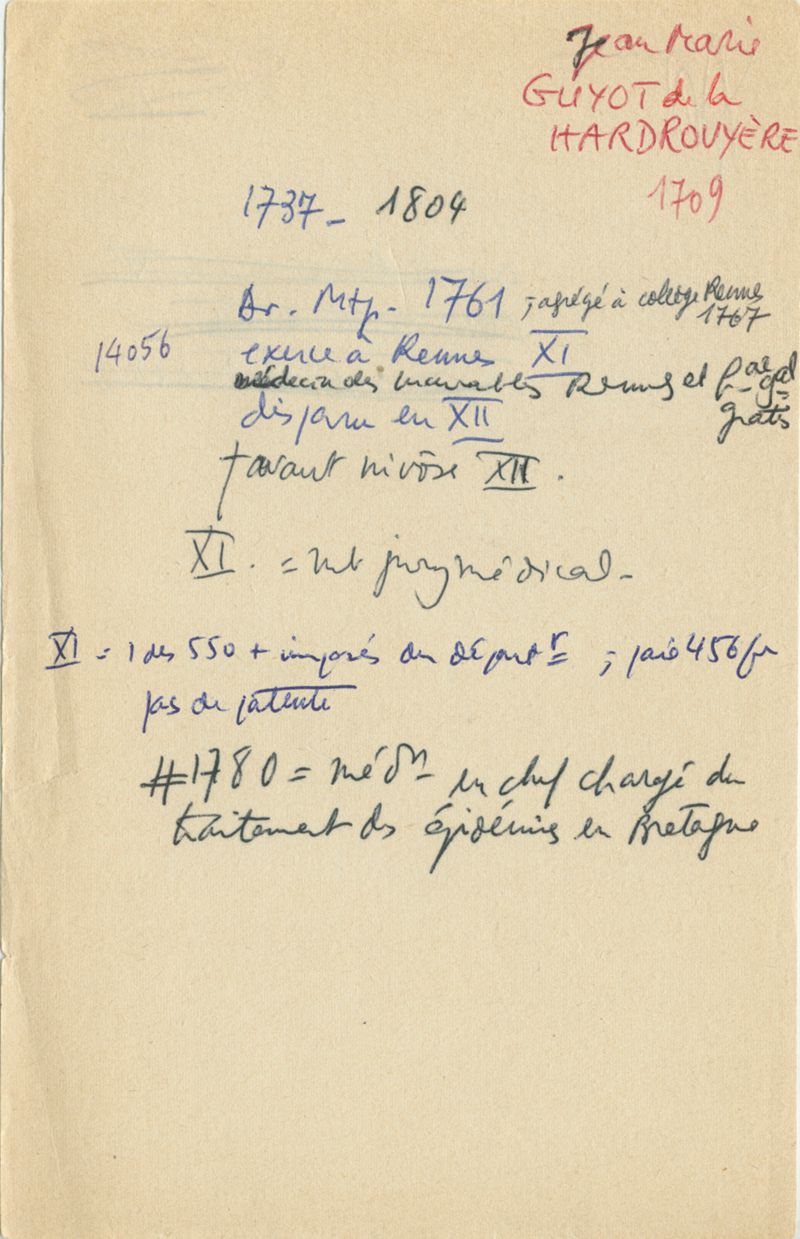 Jean Marie
GUYOT de la
HARDROUYÈRE
1709
1737 - 1804
Dr. Mtp. 1761 ; agrégé à collège Rennes
1767
14056
exerce à Rennes XI
médecin des incurables Rennes et
gratis
disparu en XII
† avant nivôse XII.
XI. = mb jury médical -
XI = 1 des 550 + imposés du départ ; paie 456 fr
pas de patente
#1780 = méd n en chef chargé du
traitement des épidémies en Bretagne